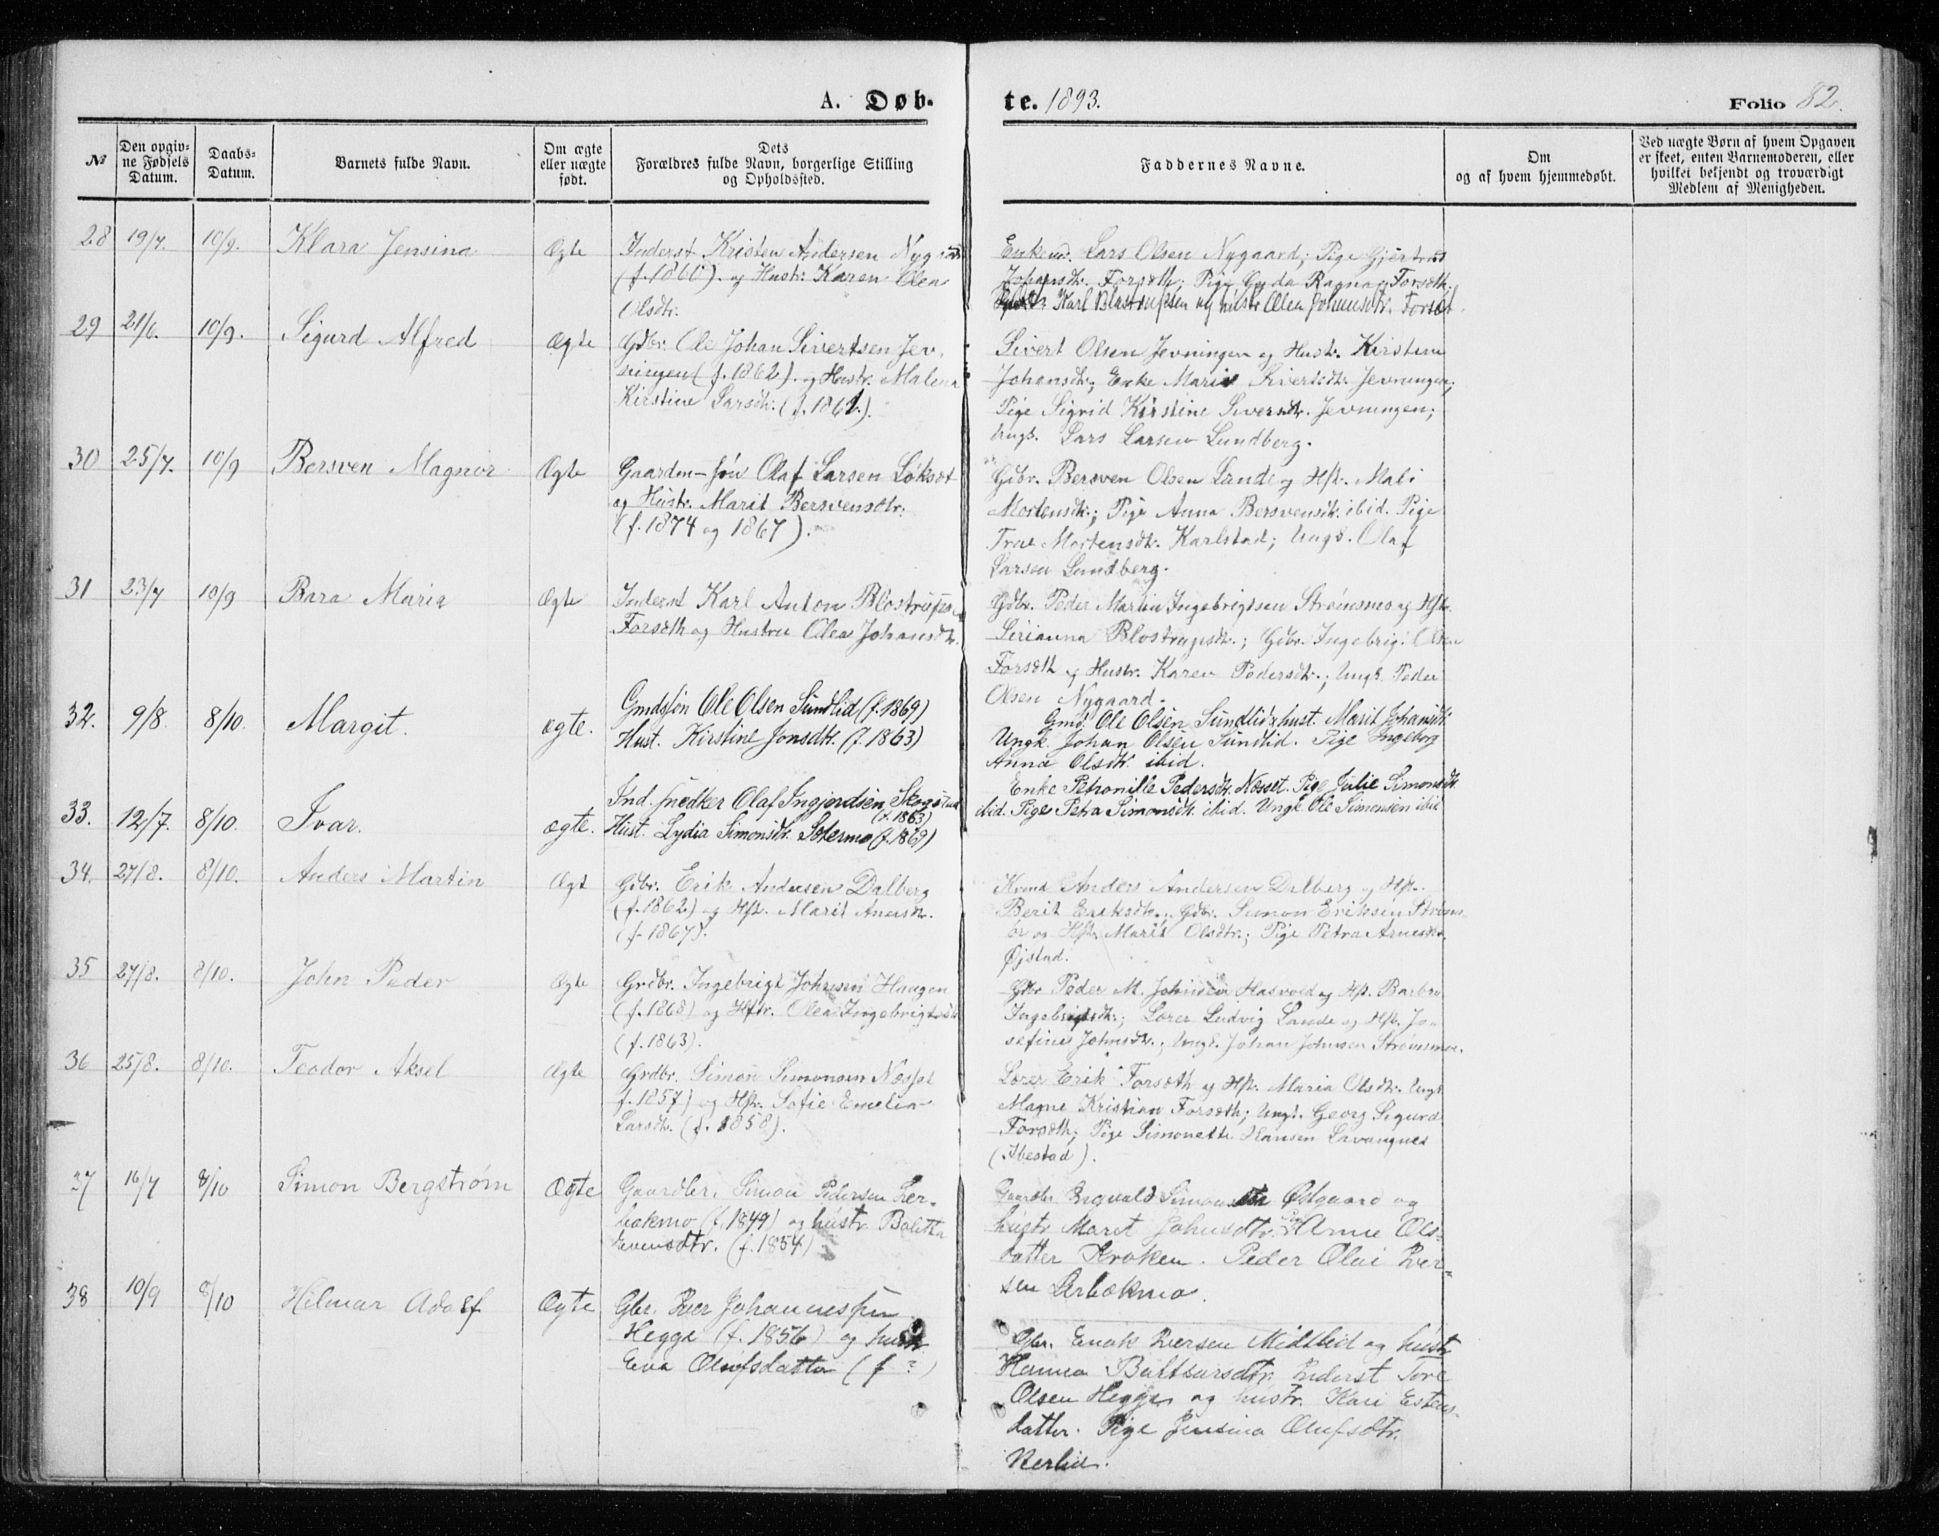 A. Døb-
te. 1893.
Folio 82.
№
Den opgiv-
ne Fødsels
Datum.
Daabs-
Datum.
Barnets fulde Navn.
Om ægte
eller uægte
født.
Dets
Forældres fulde Navn, borgerlige Stilling
og Opholdssted.
Faddernes Navne.
Om
og af hvem hjemmedøbt.
Ved uægte Børn af hvem Opgaven
er skeet, enten Barnemoderen, eller
hvilket bekjendt og troværdigt
Medlem af Menigheden.
28 19/7. 10/9. Klara Jensina Ægte
Inderst Kristen Andersen
(f. 1860). og Hustr. Karen Olea
Olsdtr.
Lars Olsen Nygaard; Pige
Johansdtr. Forsæth; Pige Ragna Forsæth.
Karl og hustr. Olea Johansdtr.
29 21/6. 10/9. Sigurd Alfred Ægte
Gdbr. Ole Johan Sivertsen Jev-
ningen (f. 1862). og Hustr. Malena
Kirstine Larsdtr. (f. 1861.).
Sivert Olsen Jevningen og Hustr. Kirstine
Johansdtr; Enke Marie Sivertsdtr. Jevningen;
Pige Sigrid Kirstine Siversdtr. Jevningen;
Ungk. Lars Larsen Lundberg.
30 25/7. 10/9 Bersven Magnor Ægte
Gaardm-søn Olaf Larsen Løksæt
og Hustr. Marit Bersvensdtr.
(f. 1874 og 1867).
Gdbr. Bersven Olsen Lande og Hst. Mali
Mortensdtr.; Pige Anna Bersvensdtr. ibid. Pige
Mortensdtr. Karlstad; Ungk. Olaf
Larsen Lundberg.
31 23/7 10/9 Bara Maria Ægte
Inderst Karl Anton
Forsæth og Hustru Olea Johansdtr.
Gdbr. Peder Martin Ingebrigtsen Strømsmo og Hst.
Sirianna Blostrupsdtr.; Gdbr. Ingebrigt Olsen
Forsæth og Hustr. Karen Pedersdtr.; Ungk. Peder
Olsen Nygaard.
32. 9/8. 8/10. Margit. ægte.
Gmdssøn Ole Olsen Sundlid (f. 1869)
Hust. Kirstine Jonsdtr. (f. 1863)
Gmd. Ole Olsen Sundlid & hust. Marit Johansdtr.
Ungk. Johan Olsen Sundlid. Pige Ingeborg
Anna Olsdtr. ibid.
33. 12/7. 8/10. Ivar. ægte.
Ind. snedker Olaf Ingjordsen Skogstad
(f. 1863)
Hust. Lydia Simonsdtr. (f. 1869)
Enke Petronille Pedersdtr. Nesset. Pige Julie Simonsdtr.
ibid. Pige Petra Simonsdtr. ibid. Ungk. Ole Simonsen ibid
34. 27/8. 8/10. Anders Martin Ægt
Gdbr. Erik Andersen Dalberg
(f. 1862) og Hst. Marit
(f. 1867).
Anders Andersen Dalberg og Hst.
Berit Eriksdtr.; Gdbr. Simon Eriksen
og Hst. Marit Olsdtr.; Pige Petra Arnesdtr.
Øjstad.
35 27/8. 8/10. John Peder Ægte
Grdbr. Ingebrigt Johnsen Haugen
(f. 1868) og Hstr. Olea Ingebrigtsdtr.
(f. 1863).
Gbr. Peder M. Johnsen Hasvold og Hst. Barbro
Ingebrigtsdtr.; Lærer Ludvig Lande og Hst. Jo-
sefine Johnsdtr.; Ungk. Johan Johnsen Strømsmo.
36 25/8. 8/10. Teodor Aksel Ægte
Grdbr. Simon Simonsen Nesset
f. 1857) og Hst. Sofie Emelie
Larsdtr. (f. 1858).
Lærer Erik Forsæth og Hst. Maria Olsdtr. Ungk.
Magne Kristian Forsæth; Ungk. Georg Sigurd
Forsæth; Pige Simonette Hansen Lavangnes
(Ibestad).
37 16/7 8/10 Simon Bergstrøm Ægte
Gaardbr. Simon Pedersen Ler-
bækmo (f. 1849) og hustr. Bolitta
Evensdtr. (f. 1854)
Gaardbr Simonsen Østgaard og
hustr Maret Johnsdtr. Anne Ols-
datter Kroken. Peder Olai Per-
sen Lerbækmo.
38 10/9 8/10 Hilmar Adolf Ægte
Gbr. Peer Johannessen
Hegge (f. 1856) og hustr
Eva Olufsdatter (f ?)
Gbr. Enok Persen Midtlid og hustr
Hanna Baltsarsdtr. Inderst Tore
Olsen Hegge og hustr. Kari Estens-
datter. Pige Jensina Olufsdtr.
Nerlid.